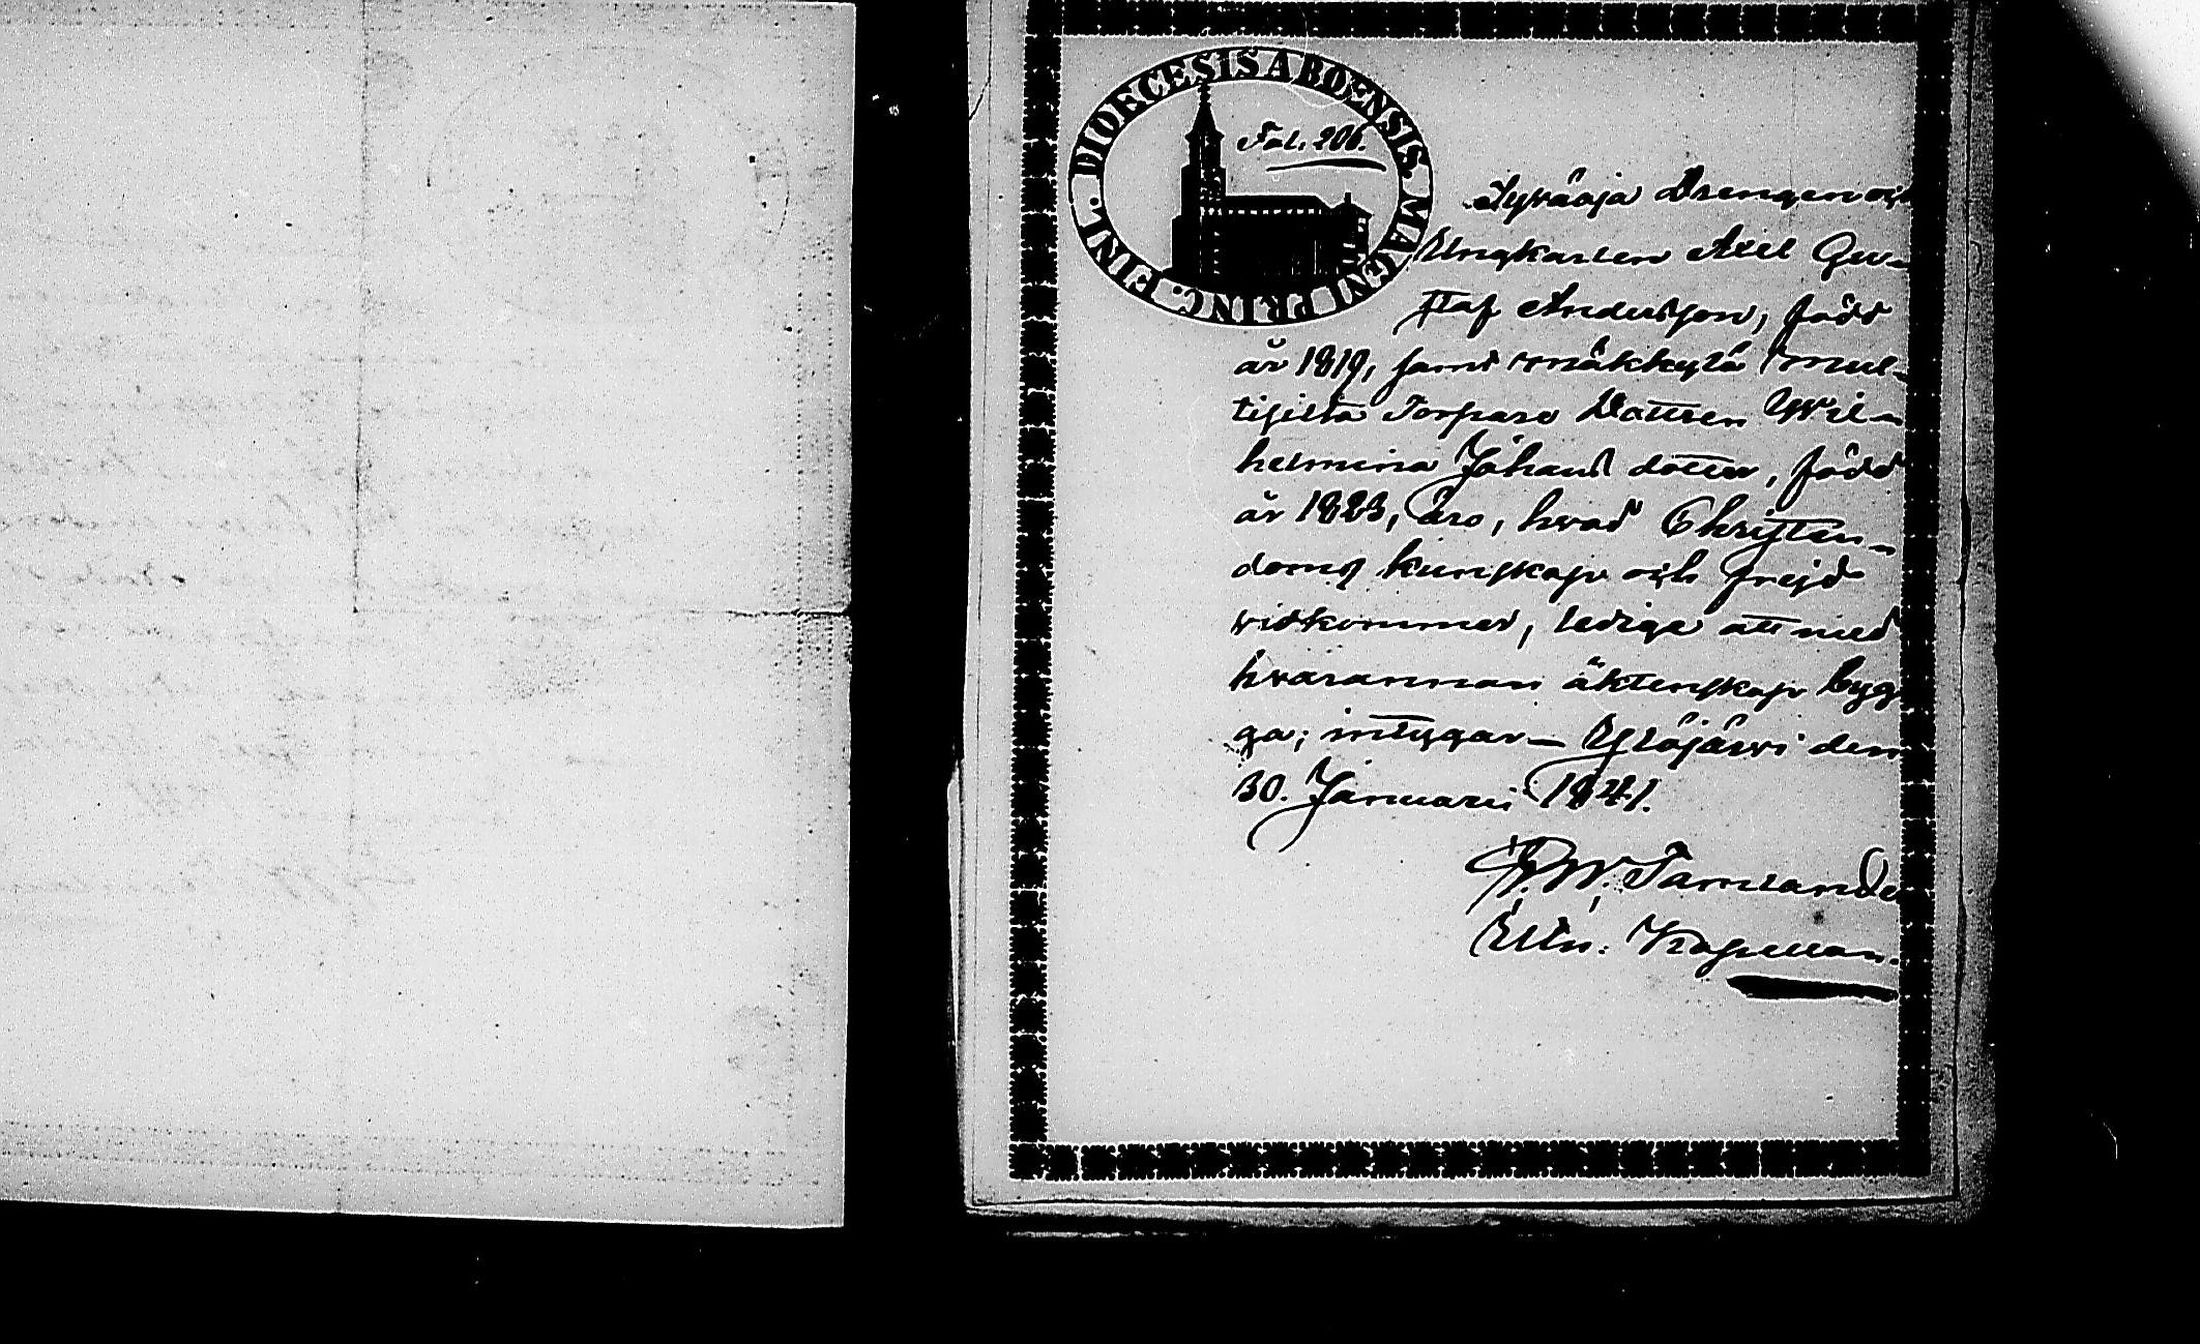 DIOECESIS ABOENSIS. MAGNI PRINC. FINL.
Fol. 206.
Syväoja Drengen och
Ungkarlen Axel Gu-
staf Andersson, född
år 1819, samt Mäkkylä
Torpare Dottren Wil-
helmina Johans dotter, född
år 1823, äro, hvad Christen-
doms kunskap och frejd
vidkommer, lediga att med
hvarannan äktenskap byg
ga; intygar _ Ylöjärvi den
30. Januarii 1841.
Tamlander
Kapellan.